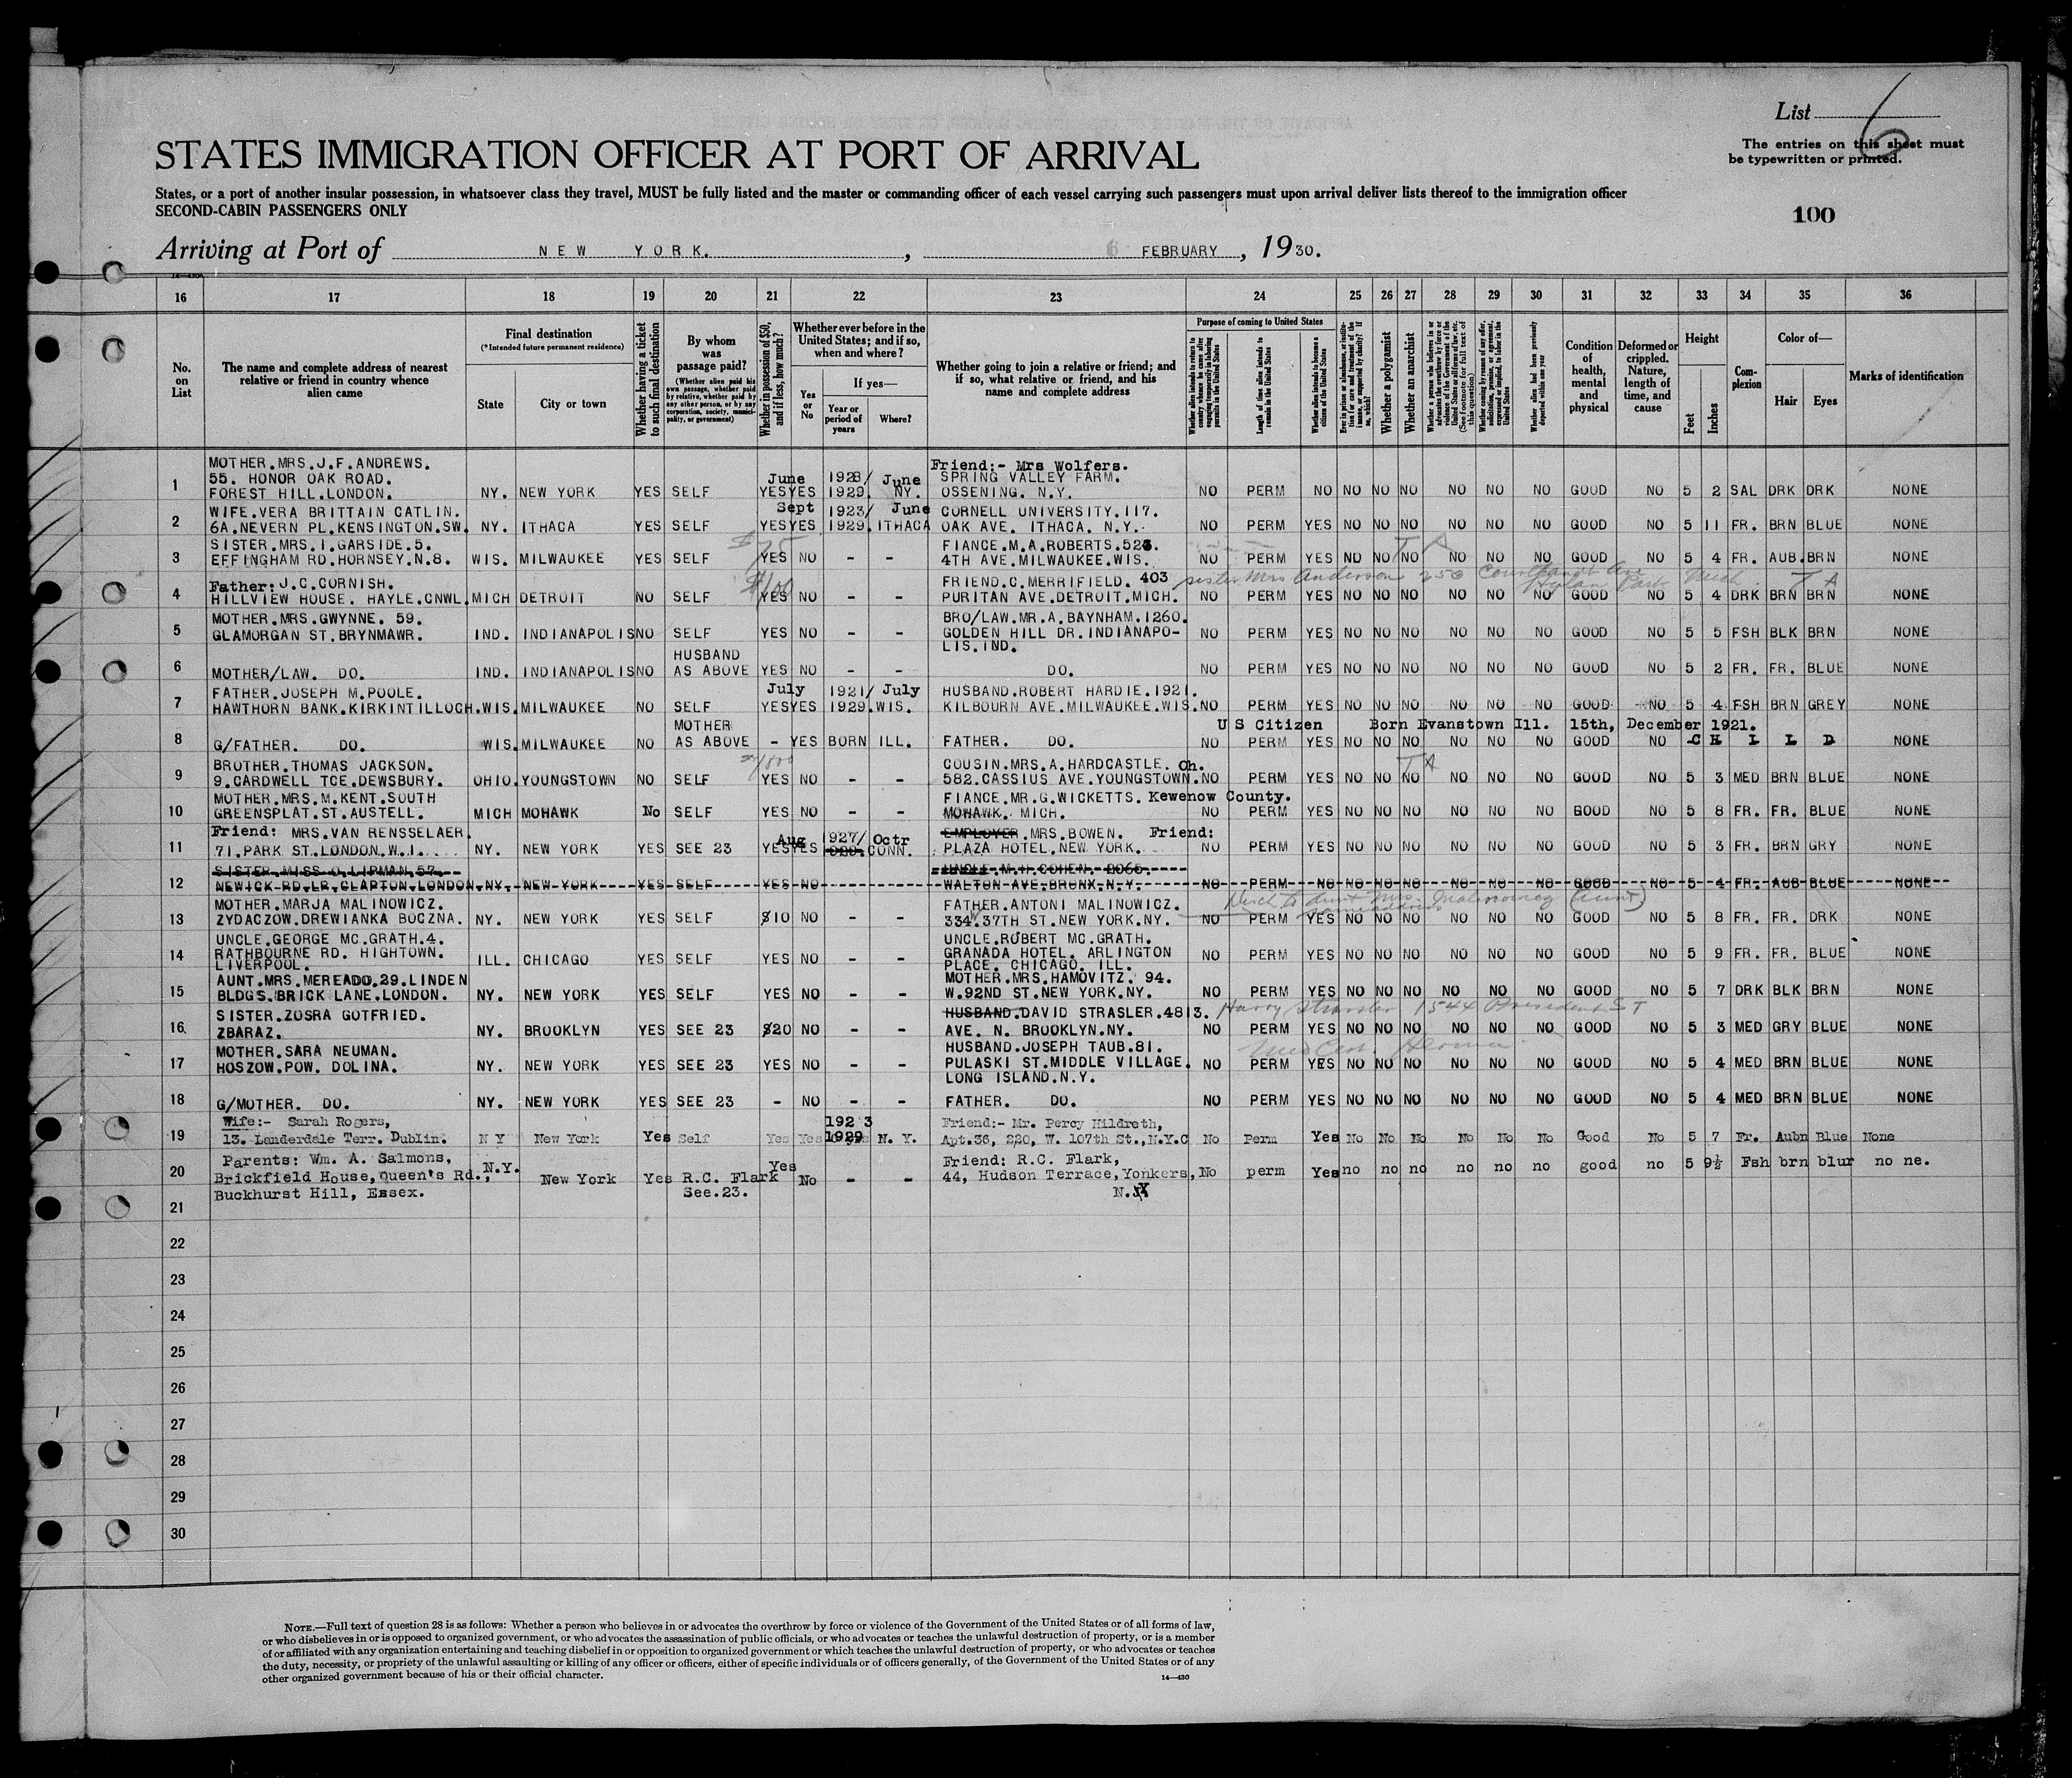 List 6
The entries on this sheet must
be typewritten or printed.
STATES IMMIGRATION OFFICER AT PORT OF ARRIVAL
States, or a port of another insular possession, in whatsoever class they travel, MUST be fully listed and the master or commanding officer of each vessel carrying such passengers must upon arrival deliver lists thereof to the immigration officer
SECOND-CABIN PASSENGERS ONLY
100
Arriving at Port of NEW YORK. , 6 FEBRUARY , 1930.
16 17 18 19 20 21 22 23 24 25 26 27 28 29 30 31 32 33 34 35 36
No. on List
The name and complete address of nearest relative or friend in country whence alien came
Final destination
(*Intended future permanent residence)
State
City or town
Whether having a ticket to such final destination
By whom was passage paid?
(Whether alien paid his own passage, whether paid by relative, whether paid by any other person, or by any corporation, society, municipality, or government)
Whether in possession of $50, and if less, how much?
Whether ever before in the United States; and if so, when and where?
Yes or No
If yes—
Year or period of years
Where?
Whether going to join a relative or friend; and if so, what relative or friend, and his name and complete address
Purpose of coming to United States
Length of time alien intends to remain in the United States
Whether alien intends to become a citizen of the United States
Whether a polygamist
Whether an anarchist
Condition of health, mental and physical
Deformed or crippled. Nature, length of time, and cause
Height
Feet
Inches
Complexion
Color of—
Hair
Eyes
Marks of identification
MOTHER.MRS.J.F.ANDREWS. June 1928/ June Friend:- Mrs Wolfers.
55. HONOR OAK ROAD. SPRING VALLEY FARM.
1 FOREST HILL.LONDON. NY. NEW YORK YES SELF YES YES 1929. NY. OSSENING. N.Y. NO PERM NO NO NO NO NO NO NO GOOD NO 5 2 SAL DRK DRK NONE
WIFE.VERA BRITTAIN CATLIN. Sept 1923/ June CORNELL UNIVERSITY.117.
2 6A.NEVERN PL.KENSINGTON.SW. NY. ITHACA YES SELF YES YES 1929. ITHACA OAK AVE. ITHACA. N.Y. NO PERM YES NO NO NO NO NO NO GOOD NO 5 11 FR. BRN BLUE NONE
SISTER.MRS.I.GARSIDE.5. $75 FIANCE.M.A.ROBERTS.523.
3 EFFINGHAM RD.HORNSEY.N.8. WIS. MILWAUKEE YES SELF YES NO - - 4TH AVE.MILWAUKEE.WIS. NO PERM YES NO NO NO NO NO NO GOOD NO 5 4 FR. AUB. BRN NONE
Father: J.C.CORNISH. $100 FRIEND.C.MERRIFIELD. 403 sister Mrs Anderson 250 Courtlandt Ave Hylan Park Mich. TA
4 HILLVIEW HOUSE. HAYLE.CNWL. MICH DETROIT NO SELF YES NO - - PURITAN AVE.DETROIT.MICH. NO PERM YES NO NO NO NO NO NO GOOD NO 5 4 DRK BRN BRN NONE
MOTHER.MRS.GWYNNE. 59. BRO/LAW.MR.A.BAYNHAM.1260.
5 GLAMORGAN ST.BRYNMAWR. IND. INDIANAPOLIS NO SELF YES NO - - GOLDEN HILL DR.INDIANAPO- NO PERM YES NO NO NO NO NO NO GOOD NO 5 5 FSH BLK BRN NONE
LIS.IND.
HUSBAND
6 MOTHER/LAW. DO. IND. INDIANAPOLIS NO AS ABOVE YES NO - - DO. NO PERM YES NO NO NO NO NO NO GOOD NO 5 2 FR. FR. BLUE NONE
FATHER.JOSEPH M.POOLE. July 1921/ July HUSBAND.ROBERT HARDIE.1921.
7 HAWTHORN BANK.KIRKINTILLOCH. WIS. MILWAUKEE NO SELF YES YES 1929. WIS. KILBOURN AVE.MILWAUKEE.WIS. NO PERM YES NO NO NO NO NO NO GOOD NO 5 4 FSH BRN GREY NONE
MOTHER US Citizen Born Evanstown Ill. 15th, December 1921.
8 G/FATHER. DO. WIS. MILWAUKEE NO AS ABOVE - YES BORN ILL. FATHER. DO. NO PERM YES NO NO NO NO NO NO GOOD NO C H I L D NONE
BROTHER.THOMAS JACKSON. COUSIN.MRS.A.HARDCASTLE. Oh. TA
9 9.CARDWELL TCE.DEWSBURY. OHIO. YOUNGSTOWN NO SELF YES NO - - 582.CASSIUS AVE.YOUNGSTOWN. NO PERM YES NO NO NO NO NO NO GOOD NO 5 3 MED BRN BLUE NONE
MOTHER.MRS.M.KENT.SOUTH FIANCE.MR.G.WICKETTS. Kewenow County.
10 GREENSPLAT.ST.AUSTELL. MICH MOHAWK No SELF YES NO - - MOHAWK. MICH. NO PERM YES NO NO NO NO NO NO GOOD NO 5 8 FR. FR. BLUE NONE
Friend: MRS.VAN RENSSELAER. Aug 1927/ Octr EMPLOYER.MRS.BOWEN. Friend:
11 71.PARK ST.LONDON.W.1. NY. NEW YORK YES SEE 23 YES YES 1929. CONN. PLAZA HOTEL.NEW YORK. NO PERM YES NO NO NO NO NO NO GOOD NO 5 3 FR. BRN GRY NONE
SISTER.MISS O.LIPMAN.57. UNCLE.M.H.COHEN. 2065.
12 NEWICK RD.LR.CLAPTON.LONDON. NY. NEW YORK YES SELF YES NO WALTON AVE.BRONX.N.Y. NO PERM NO NO NO NO NO NO NO GOOD NO 5 4 FR. AUB BLUE NONE
MOTHER.MARJA MALINOWICZ. FATHER.ANTONI MALINOWICZ.
13 ZYDACZOW.DREWIANKA BOCZNA. NY. NEW YORK YES SELF $10 NO - - 334W 37TH ST.NEW YORK.NY. NO PERM YES NO NO NO NO NO NO GOOD NO 5 8 FR. FR. DRK NONE
UNCLE.GEORGE MC.GRATH.4. UNCLE.ROBERT MC.GRATH.
14 RATHBOURNE RD. HIGHTOWN. ILL. CHICAGO YES SELF YES NO - - GRANADA HOTEL. ARLINGTON NO PERM YES NO NO NO NO NO NO GOOD NO 5 9 FR. FR. BLUE NONE
LIVERPOOL. PLACE. CHICAGO. ILL.
AUNT.MRS.MEREADO.29.LINDEN MOTHER.MRS.HAMOVITZ. 94.
15 BLDGS.BRICK LANE.LONDON. NY. NEW YORK YES SELF YES NO - - W.92ND ST.NEW YORK.NY. NO PERM YES NO NO NO NO NO NO GOOD NO 5 7 DRK BLK BRN NONE
SISTER.ZOSRA GOTFRIED. HUSBAND.DAVID STRASLER.4813. Harry Strassler 1544 President ST
16 ZBARAZ. NY. BROOKLYN YES SEE 23 $20 NO - - AVE. N. BROOKLYN.NY. NO PERM YES NO NO NO NO NO NO GOOD NO 5 3 MED GRY BLUE NONE
MOTHER.SARA NEUMAN. HUSBAND.JOSEPH TAUB.81.
17 HOSZOW.POW. DOLINA. NY. NEW YORK YES SEE 23 YES NO - - PULASKI ST.MIDDLE VILLAGE. NO PERM YES NO NO NO NO NO NO GOOD NO 5 4 MED BRN BLUE NONE
LONG ISLAND.N.Y.
18 G/MOTHER. DO. NY. NEW YORK YES SEE 23 - NO - - FATHER. DO. NO PERM YES NO NO NO NO NO NO GOOD NO 5 4 MED BRN BLUE NONE
Wife:- Sarah Rogers, 1923 Friend:- Mr. Percy Hildreth,
19 13. Landerdale Terr. Dublin. N Y New York Yes Self Yes Yes 1929 N. Y. Apt.36, 220, W. 107th St.,N.Y.C No Perm Yes No No No No No No Good No 5 7 Fr. Aubn Blue None
Parents: Wm. A. Salmons, Yes Friend: R.C. Flark,
20 Brickfield House, Queen's Rd., N.Y. New York Yes R.C. Flark No - - 44, Hudson Terrace, Yonkers, No perm Yes no no no no no no good no 5 9½ Fsh brn blur no ne.
Buckhurst Hill, Essex. See.23. N.Y
21
22
23
24
25
26
27
28
29
30
NOTE.—Full text of question 28 is as follows: Whether a person who believes in or advocates the overthrow by force or violence of the Government of the United States or of all forms of law,
or who disbelieves in or is opposed to organized government, or who advocates the assassination of public officials, or who advocates or teaches the unlawful destruction of property, or is a member
of or affiliated with any organization entertaining and teaching disbelief in or opposition to organized government or which teaches the unlawful destruction of property, or who advocates or teaches
the duty, necessity, or propriety of the unlawful assaulting or killing of any officer or officers, either of specific individuals or of officers generally, of the Government of the United States or of any
other organized government because of his or their official character.
14—430